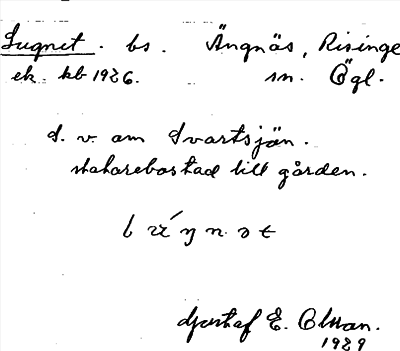 Lugnet. bs. Ängnäs, Risinge
ek. kb 1926. sn. Ögl.
S. v. om Svartsjön.
statarebostad till gården.
Gustaf E. Olsson.
1929